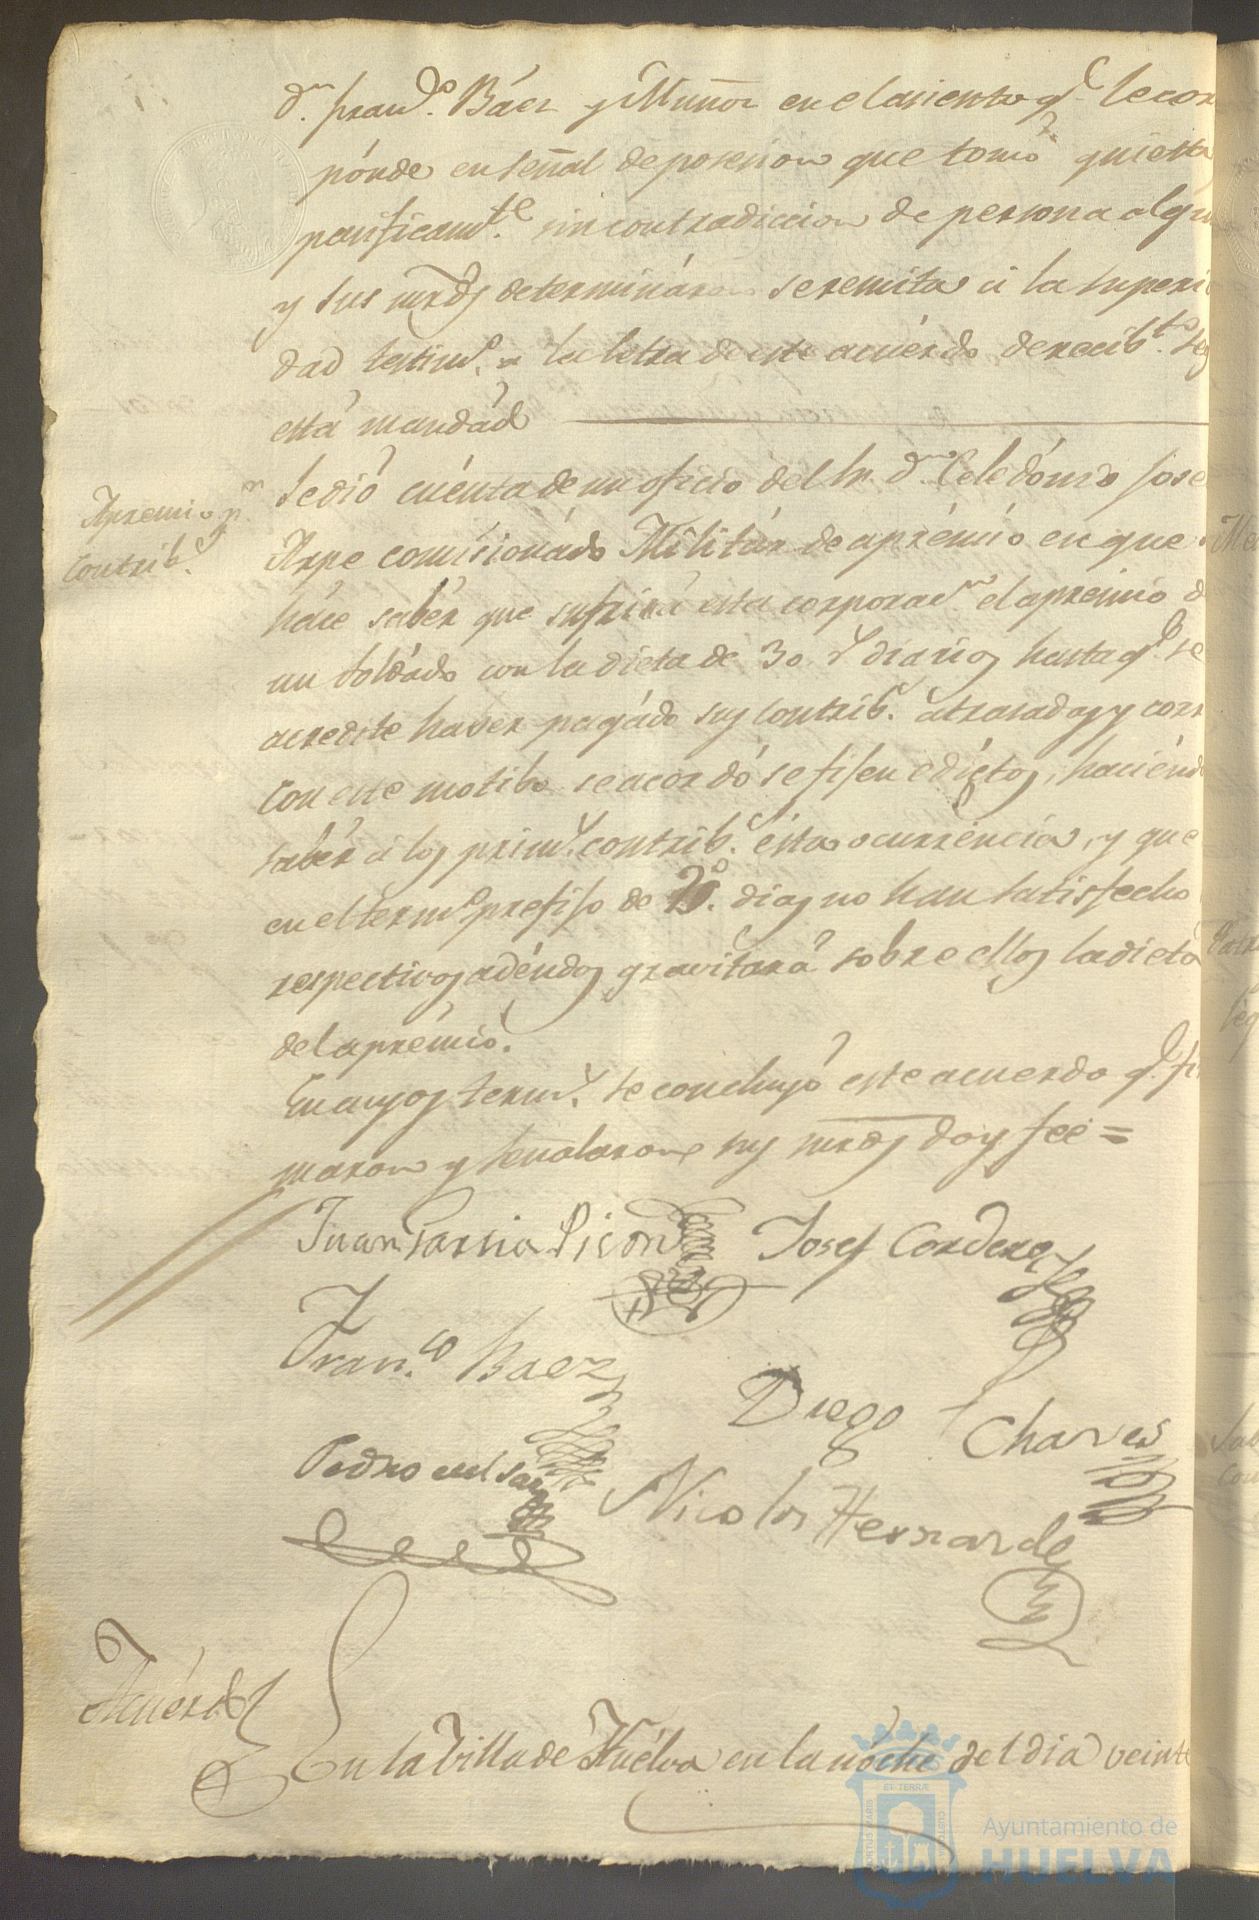 dn. Franco. Báez y Muñoz en el asiento qe. le cor
pónde en señal de posesion que tomó quieta
pasificamte. sin contradiccion de persona algu
y sus mrds determináron se remita á la superi
dad testimo. a la letra de este acuérdo de recibto. seg
está mandádo
Apremio pr.
Contribs.
Se dió cuénta de un oficio del Sr. dn. Celedónio Jose
Arpe comisionádo Militár de aprémio en que
háce sabér que sufrirá esta corporacn. el apremio d
un soldádo con la dieta de 30 rs diarios hasta qe. se
acredite haver pagádo sus contribs. atrasadas y corr
Con este motibo se acordó se fijsen edíctos, haciéndo
sabér á los prims. contribs. ésta ocurréncia, y que
en el termo. prefijso de dias no han satisfecho
respectivos adéudos gravitará sobre ellos la dieta
del aprémio.
En cuyos terms. se concluyó este acuerdo qe. fir
maron y señalaron sus mrds doy feé =
Juan Garsia Pison Josef Cordero
Franco. Baez
Diego Chaves
Pedro
Nicolas Hernandes
Acuérdo
En la Villa de Huélva en la nóche del dia veinte
ET TERRAE
CUSTODIA
PORTUS MARIS
Ayuntamiento de
HUELVA